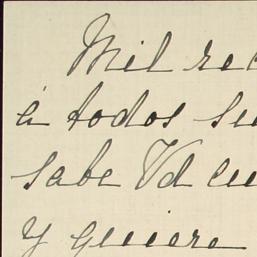 Mil rec
á todos su
sabe Vd cu
y quiere